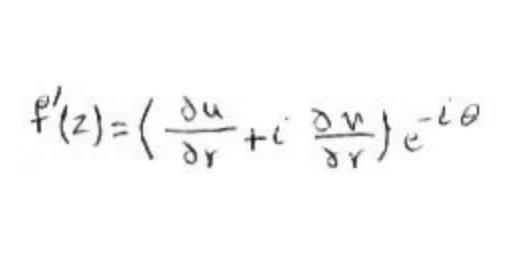 f'(z) = ( ∂u/∂r + i ∂v/∂r ) e^{-iθ}